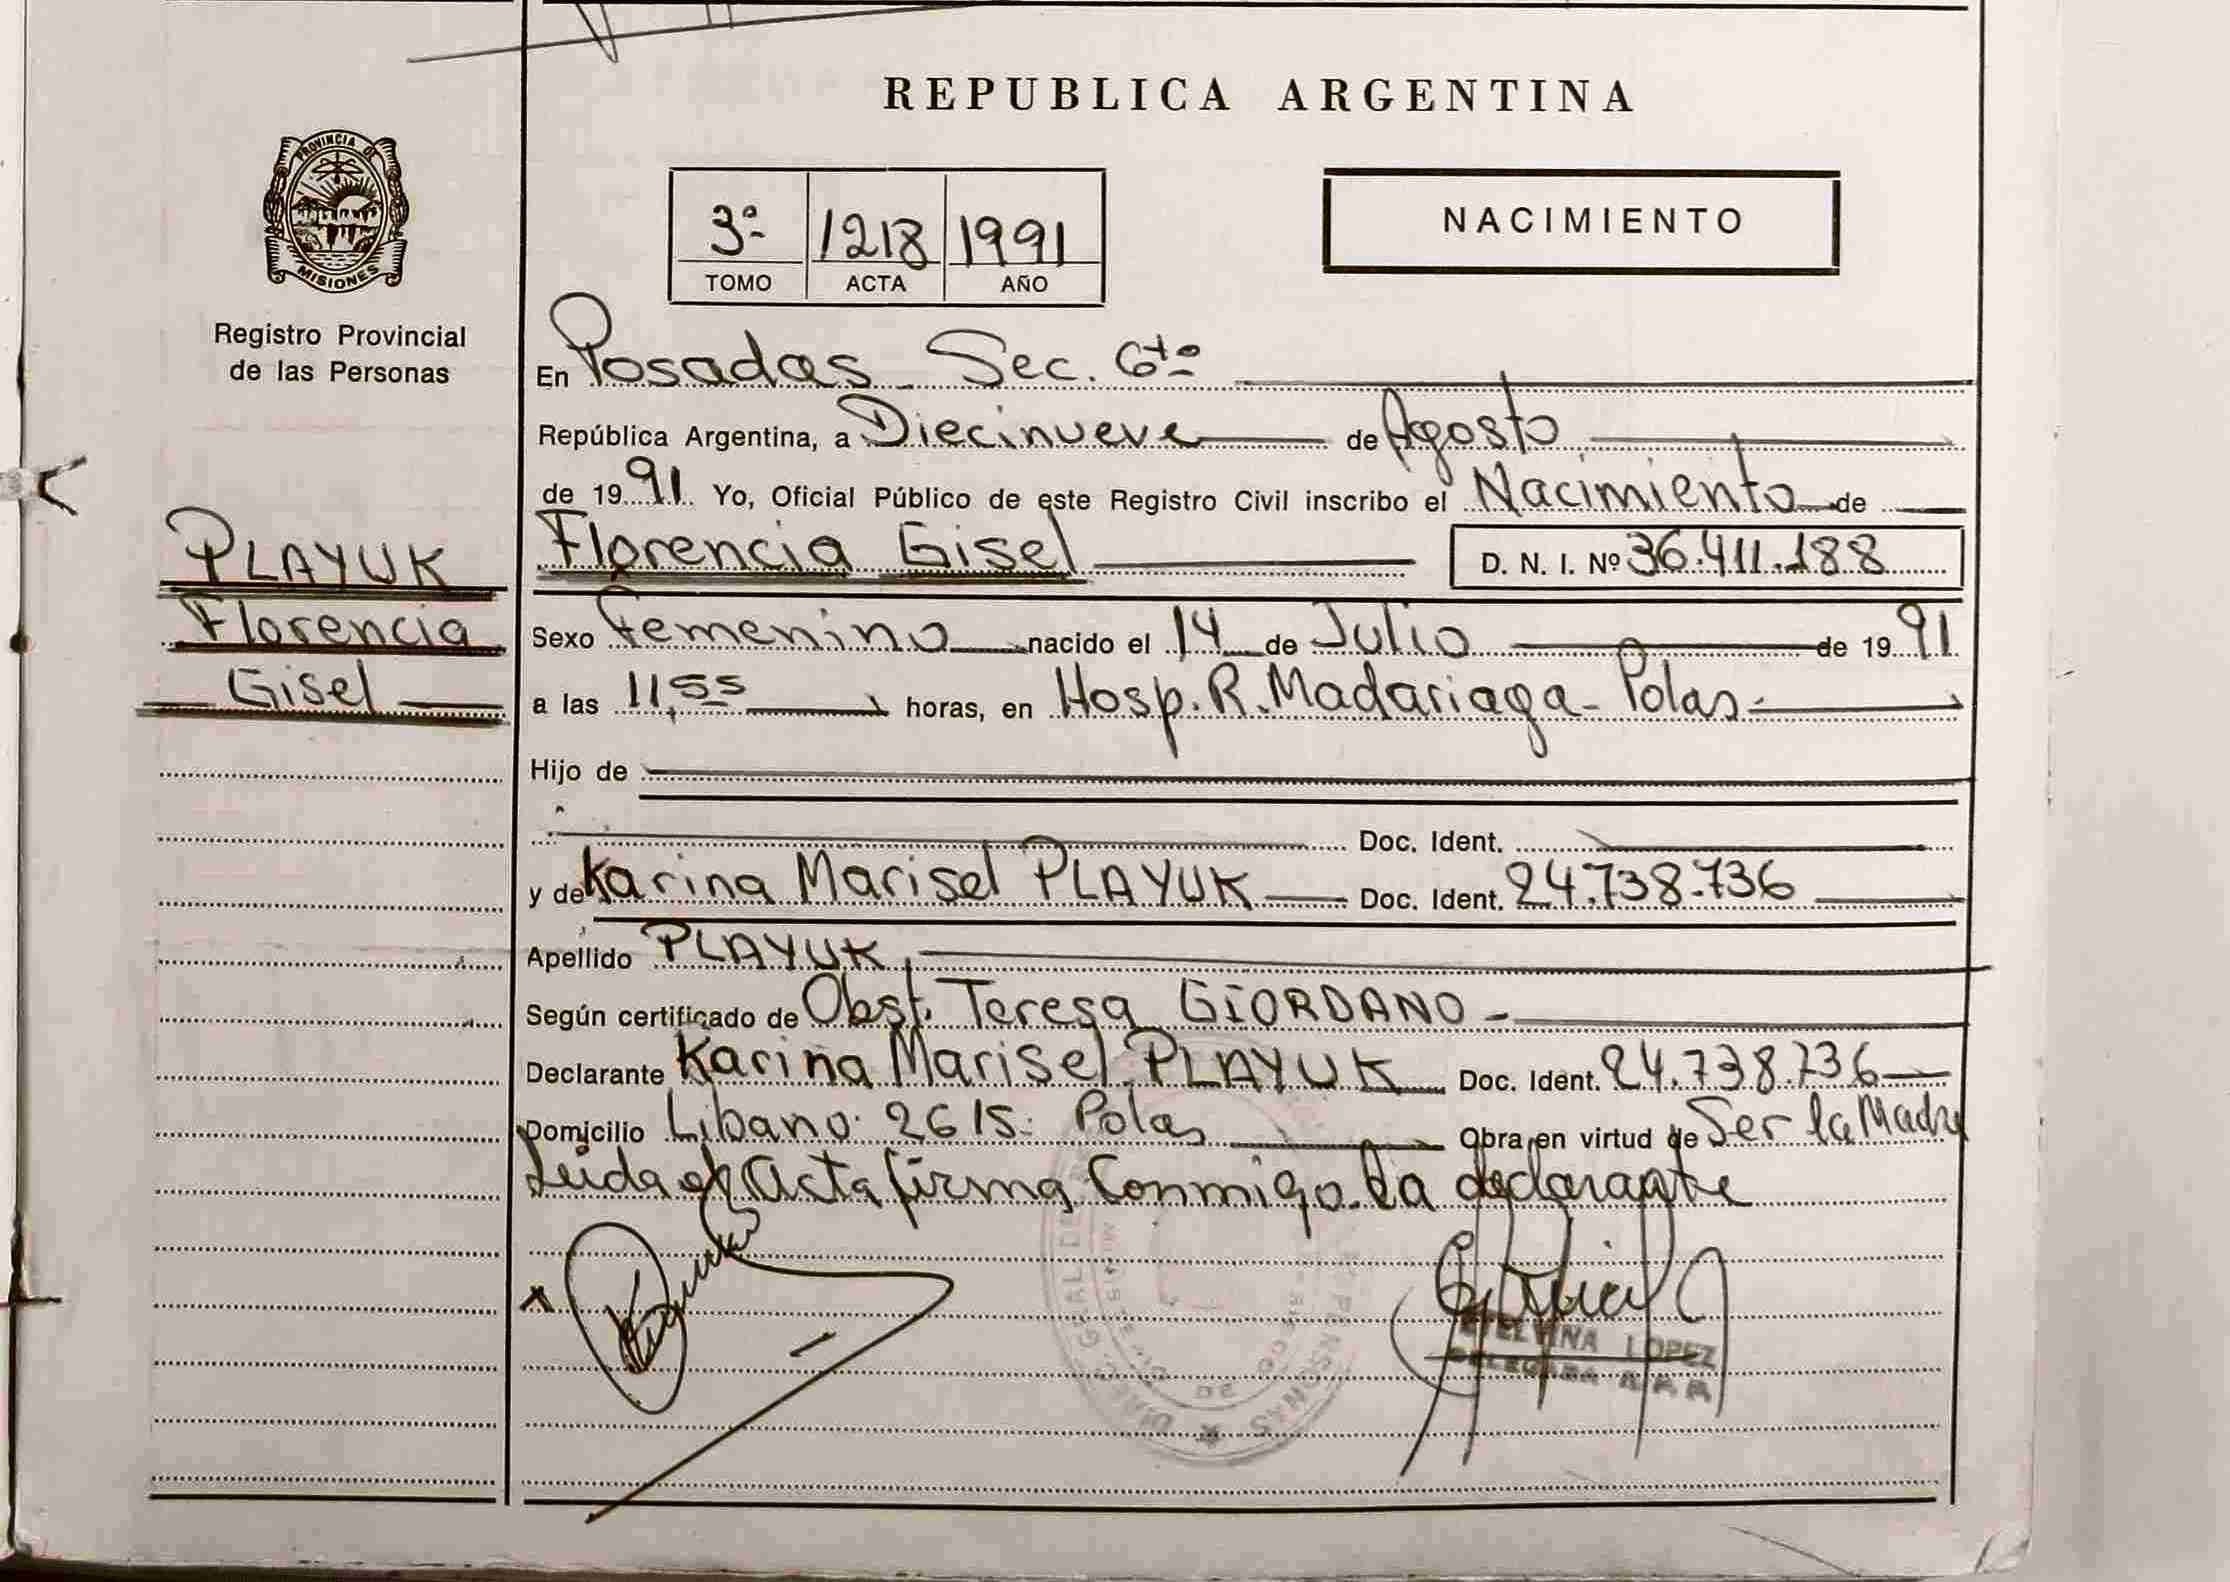 REPUBLICA ARGENTINA
PROVINCIA DE
MISIONES
Registro Provincial
de las Personas
3ª 1218 1991
TOMO ACTA AÑO
NACIMIENTO
En Posadas - Sec. 6ta
República Argentina, a Diecinueve de Agosto
de 1991 Yo, Oficial Público de este Registro Civil inscribo el Nacimiento de
PLAYUK
Florencia
Gisel
Florencia Gisel D. N. I. Nº 36.411.188
Sexo Femenino nacido el 14 de Julio de 1991
a las 11,55 horas, en Hosp. R. Madariaga - Pdas -
Hijo de
Doc. Ident.
y de Karina Marisel PLAYUK Doc. Ident. 24.738.736
Apellido PLAYUK
Según certificado de Obst. Teresa GIORDANO -
Declarante Karina Marisel PLAYUK Doc. Ident. 24.738.736
Domicilio Libano 2615. Pdas Obra en virtud de Ser la Madre
Leida el Acta firma Conmigo la declarante
LOPEZ
DELEGADA